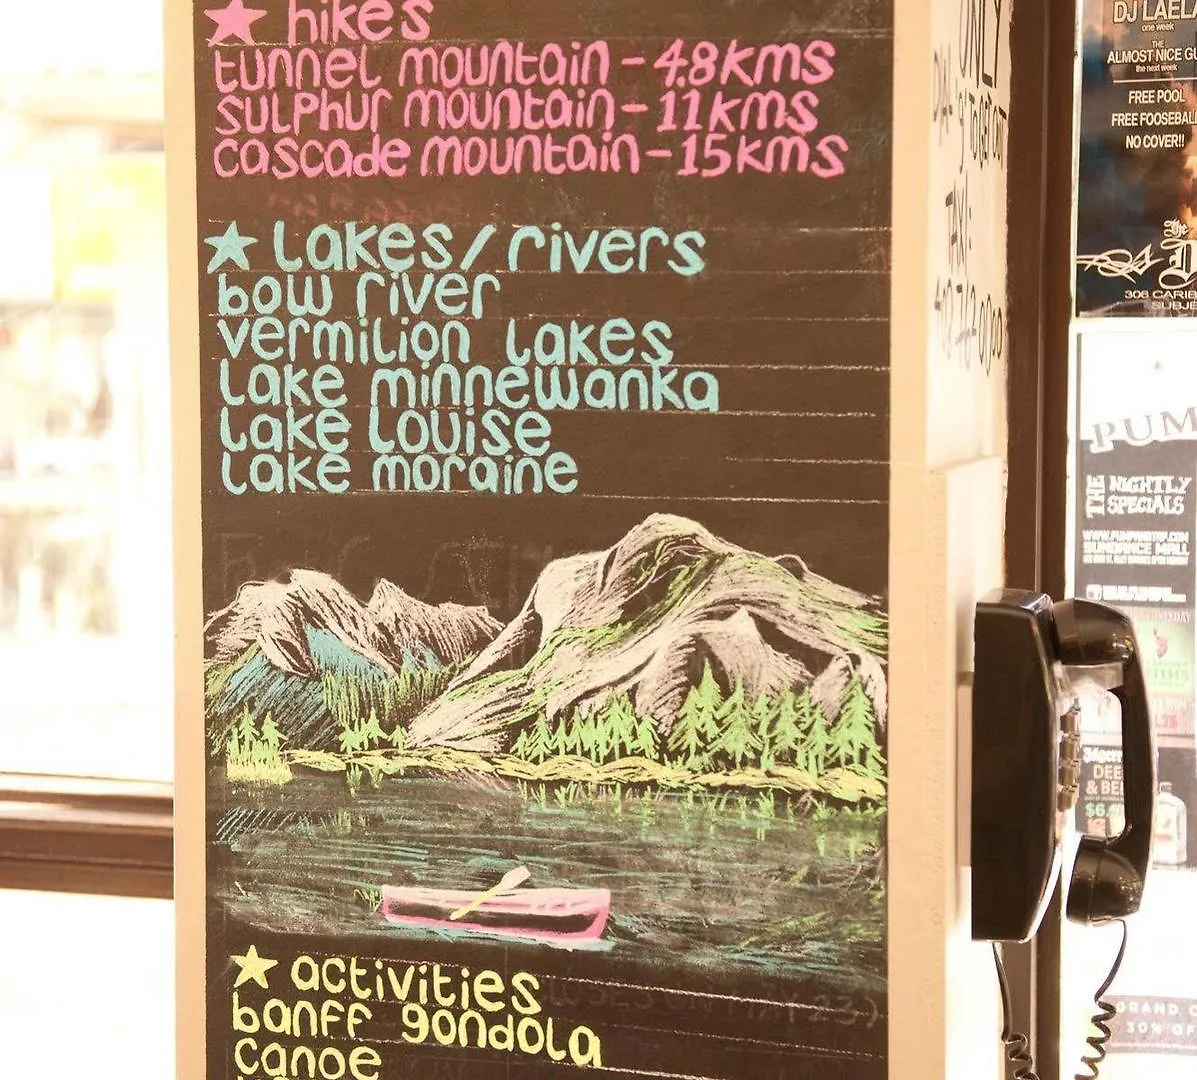 hikes
tunnel mountain - 4.8 kms
sulphur mountain - 11 kms
cascade mountain - 15 kms
lakes/rivers
bow river
vermilion lakes
lake minnewanka
lake louise
lake moraine
activities
banff gondola
canoe
ONLY
TAXI:
DJ LAELA
one week
THE
ALMOST NICE GU
the next week
FREE POOL
FREE FOOSEBAL
NO COVER!!
The
306 CARIB
SUBJE
PUM
THE NIGHTLY
SPECIALS
SUNDANCE MALL
DEE
& BE
GRAND O
30% OF